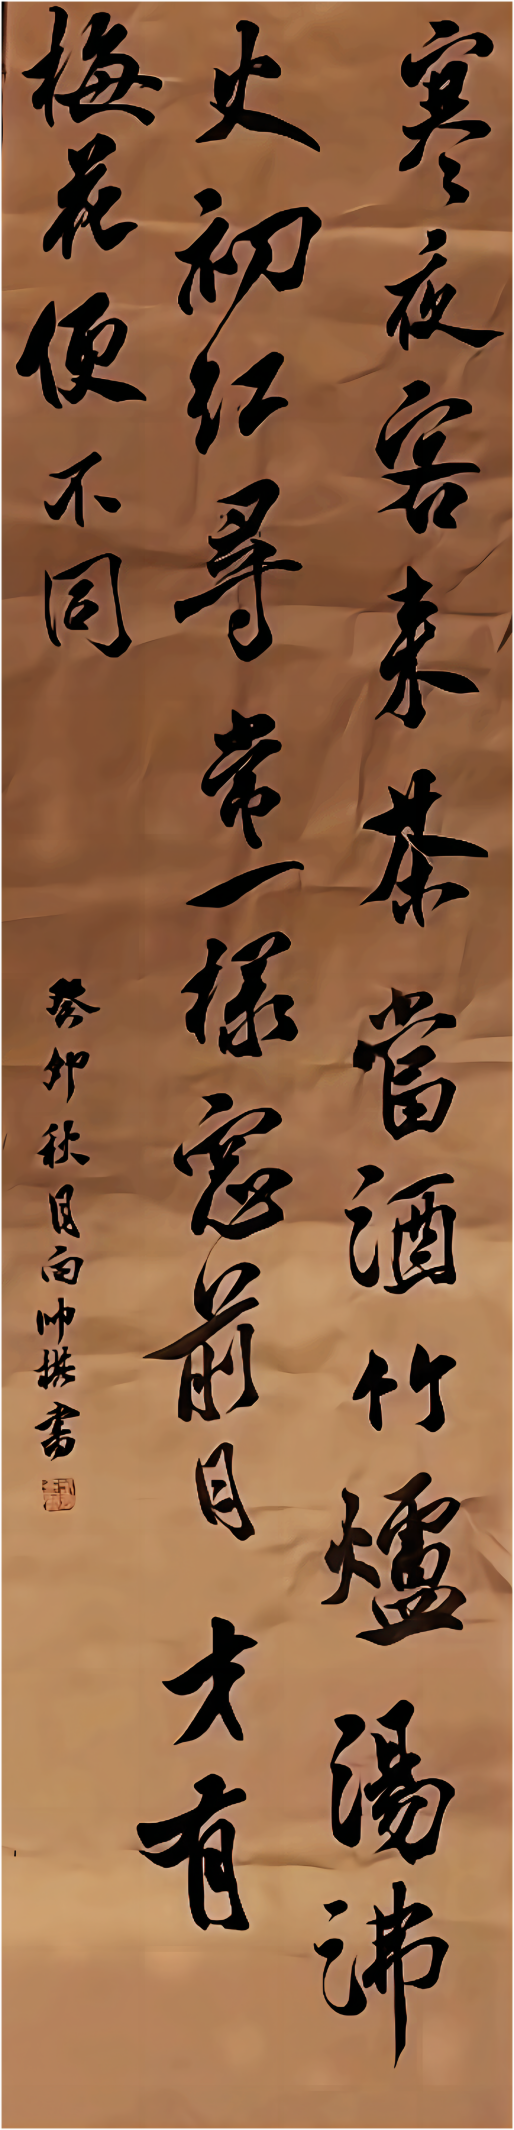 寒夜客来茶當酒竹爐湯沸
火初红尋常一樣窓前月才有
梅花便不同
癸卯秋月向帅撰書